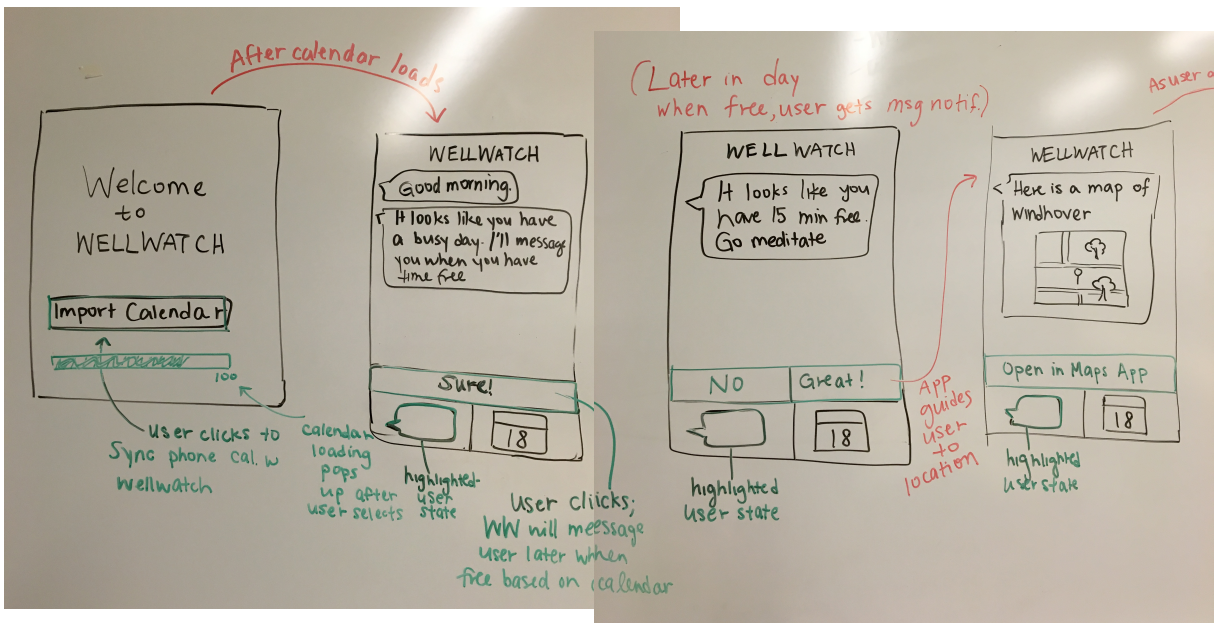 After calendar loads
Welcome
to
WELLWATCH
Import Calendar
100
User clicks to
Sync phone cal. w
wellwatch
calendar
loading
pops
up after
user selects
WELLWATCH
Good morning.
It looks like you have
a busy day. I'll message
you when you have
time free
Sure!
18
highlighted
user
state
User cliicks;
WW will meessage
user later whhen
free based on calendar
(Later in day
when free, user gets msg notif.)
WELLWATCH
It looks like you
have 15 min free.
Go meditate
NO
Great!
18
highlighted
user state
App
guides
user
to
location
As user
WELLWATCH
Here is a map of
Windhover
Open in Maps App
18
highlighted
user state